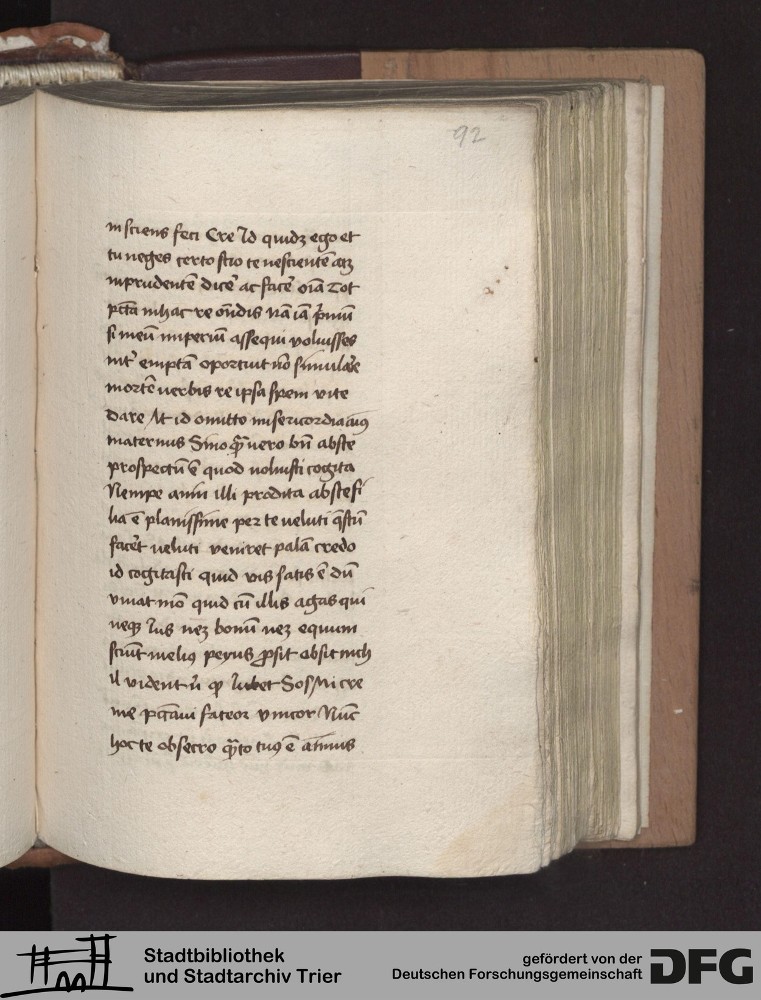 92
insciens feci Cre Id quidz ego et
tu neges certo scio te nescientē atz
inprudentē dicē ac facē oīa Tot
pctā in hac re oñdis Nā iā p̄mū
si meū imperiū assequi voluisses
int̄ emptā oportuit nō simulāe
mortē uerbis re ipsa spem vite
dare At id omitto misericordia aīꝯ
maternus Sino qm̄ uero bñ abste
prospectū ē quod uoluisti cogita
Nempe anui illi prodita abs te fi
lia ē planissime per te ueluti q̄stū
facēt ueluti veniret palā credo
id cogitasti quid vis satis ē dū
viuat mō quid cū illis agas qui
neqꝫ Ius neꝫ bonū neꝫ equum
sciūt melīꝯ peyus ꝓsit obsit nich
il vident ñ qꝫ lubet Sos Mi cre
me pctaui fateor vincor Nūc
hoc te obsecro qm̄to tuꝯ ē aīmus
Stadtbibliothek
und Stadtarchiv Trier
gefördert von der
Deutschen Forschungsgemeinschaft
DFG